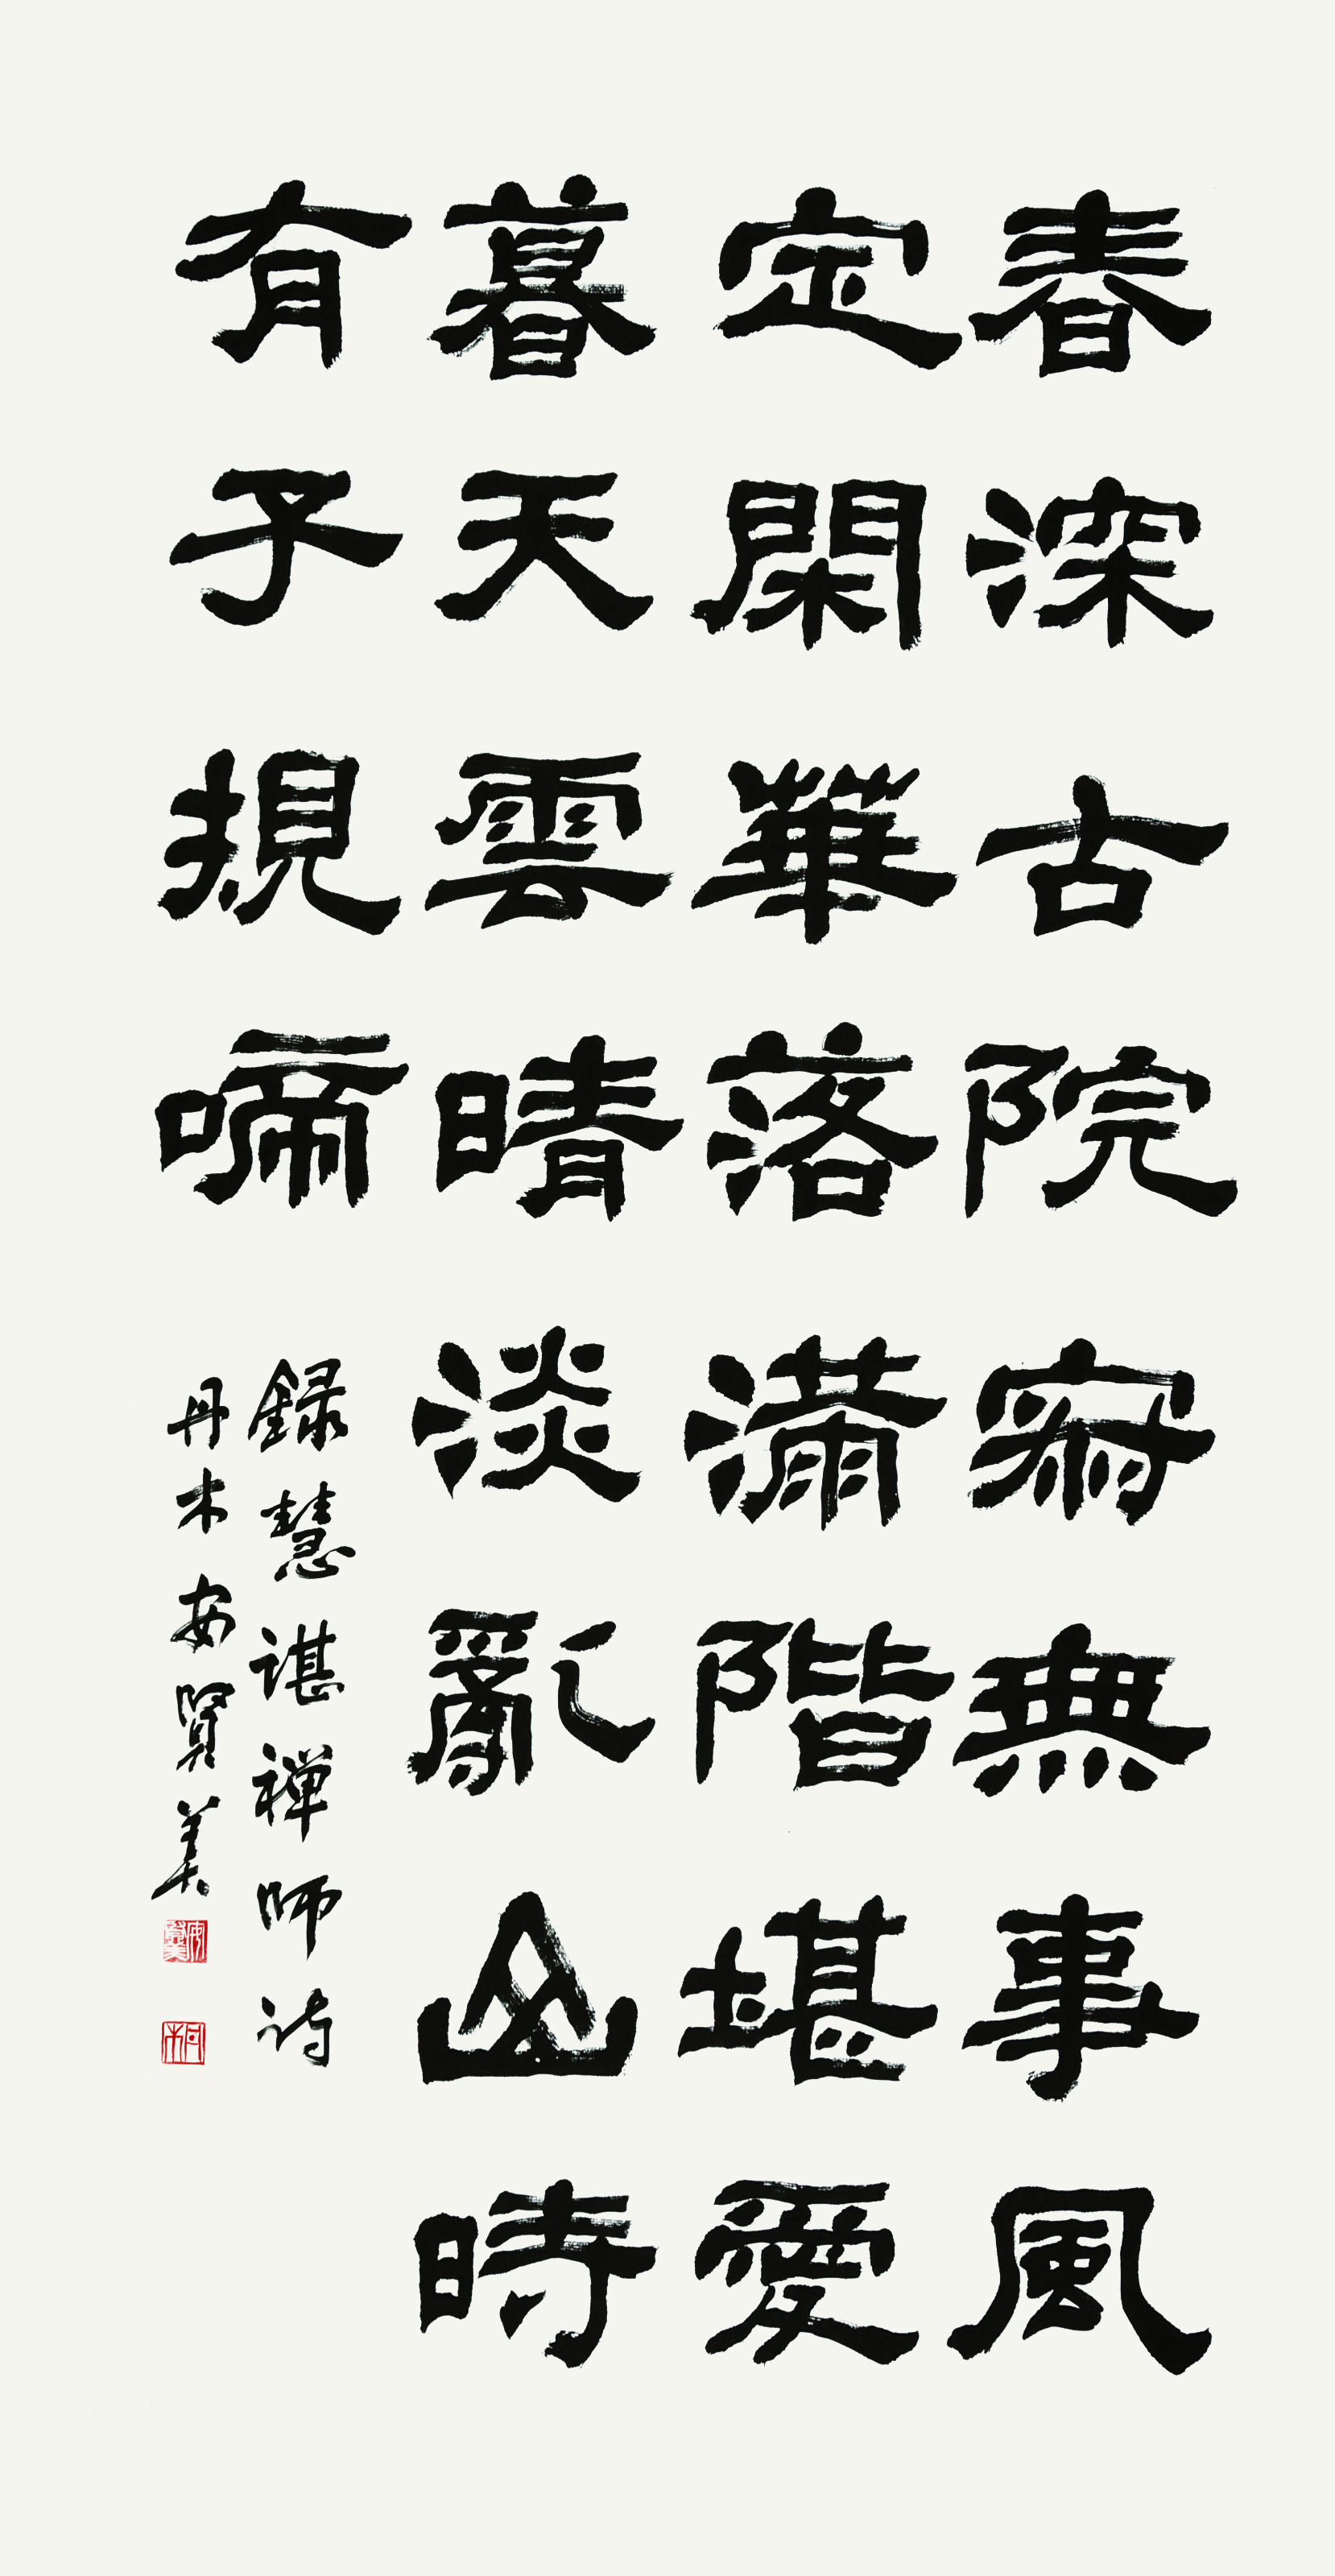 春深古院寂無事風
定閑華落滿階堪愛
暮天雲晴淡亂山時
有子規啼
録慧諶禅師詩
丹木安賢美